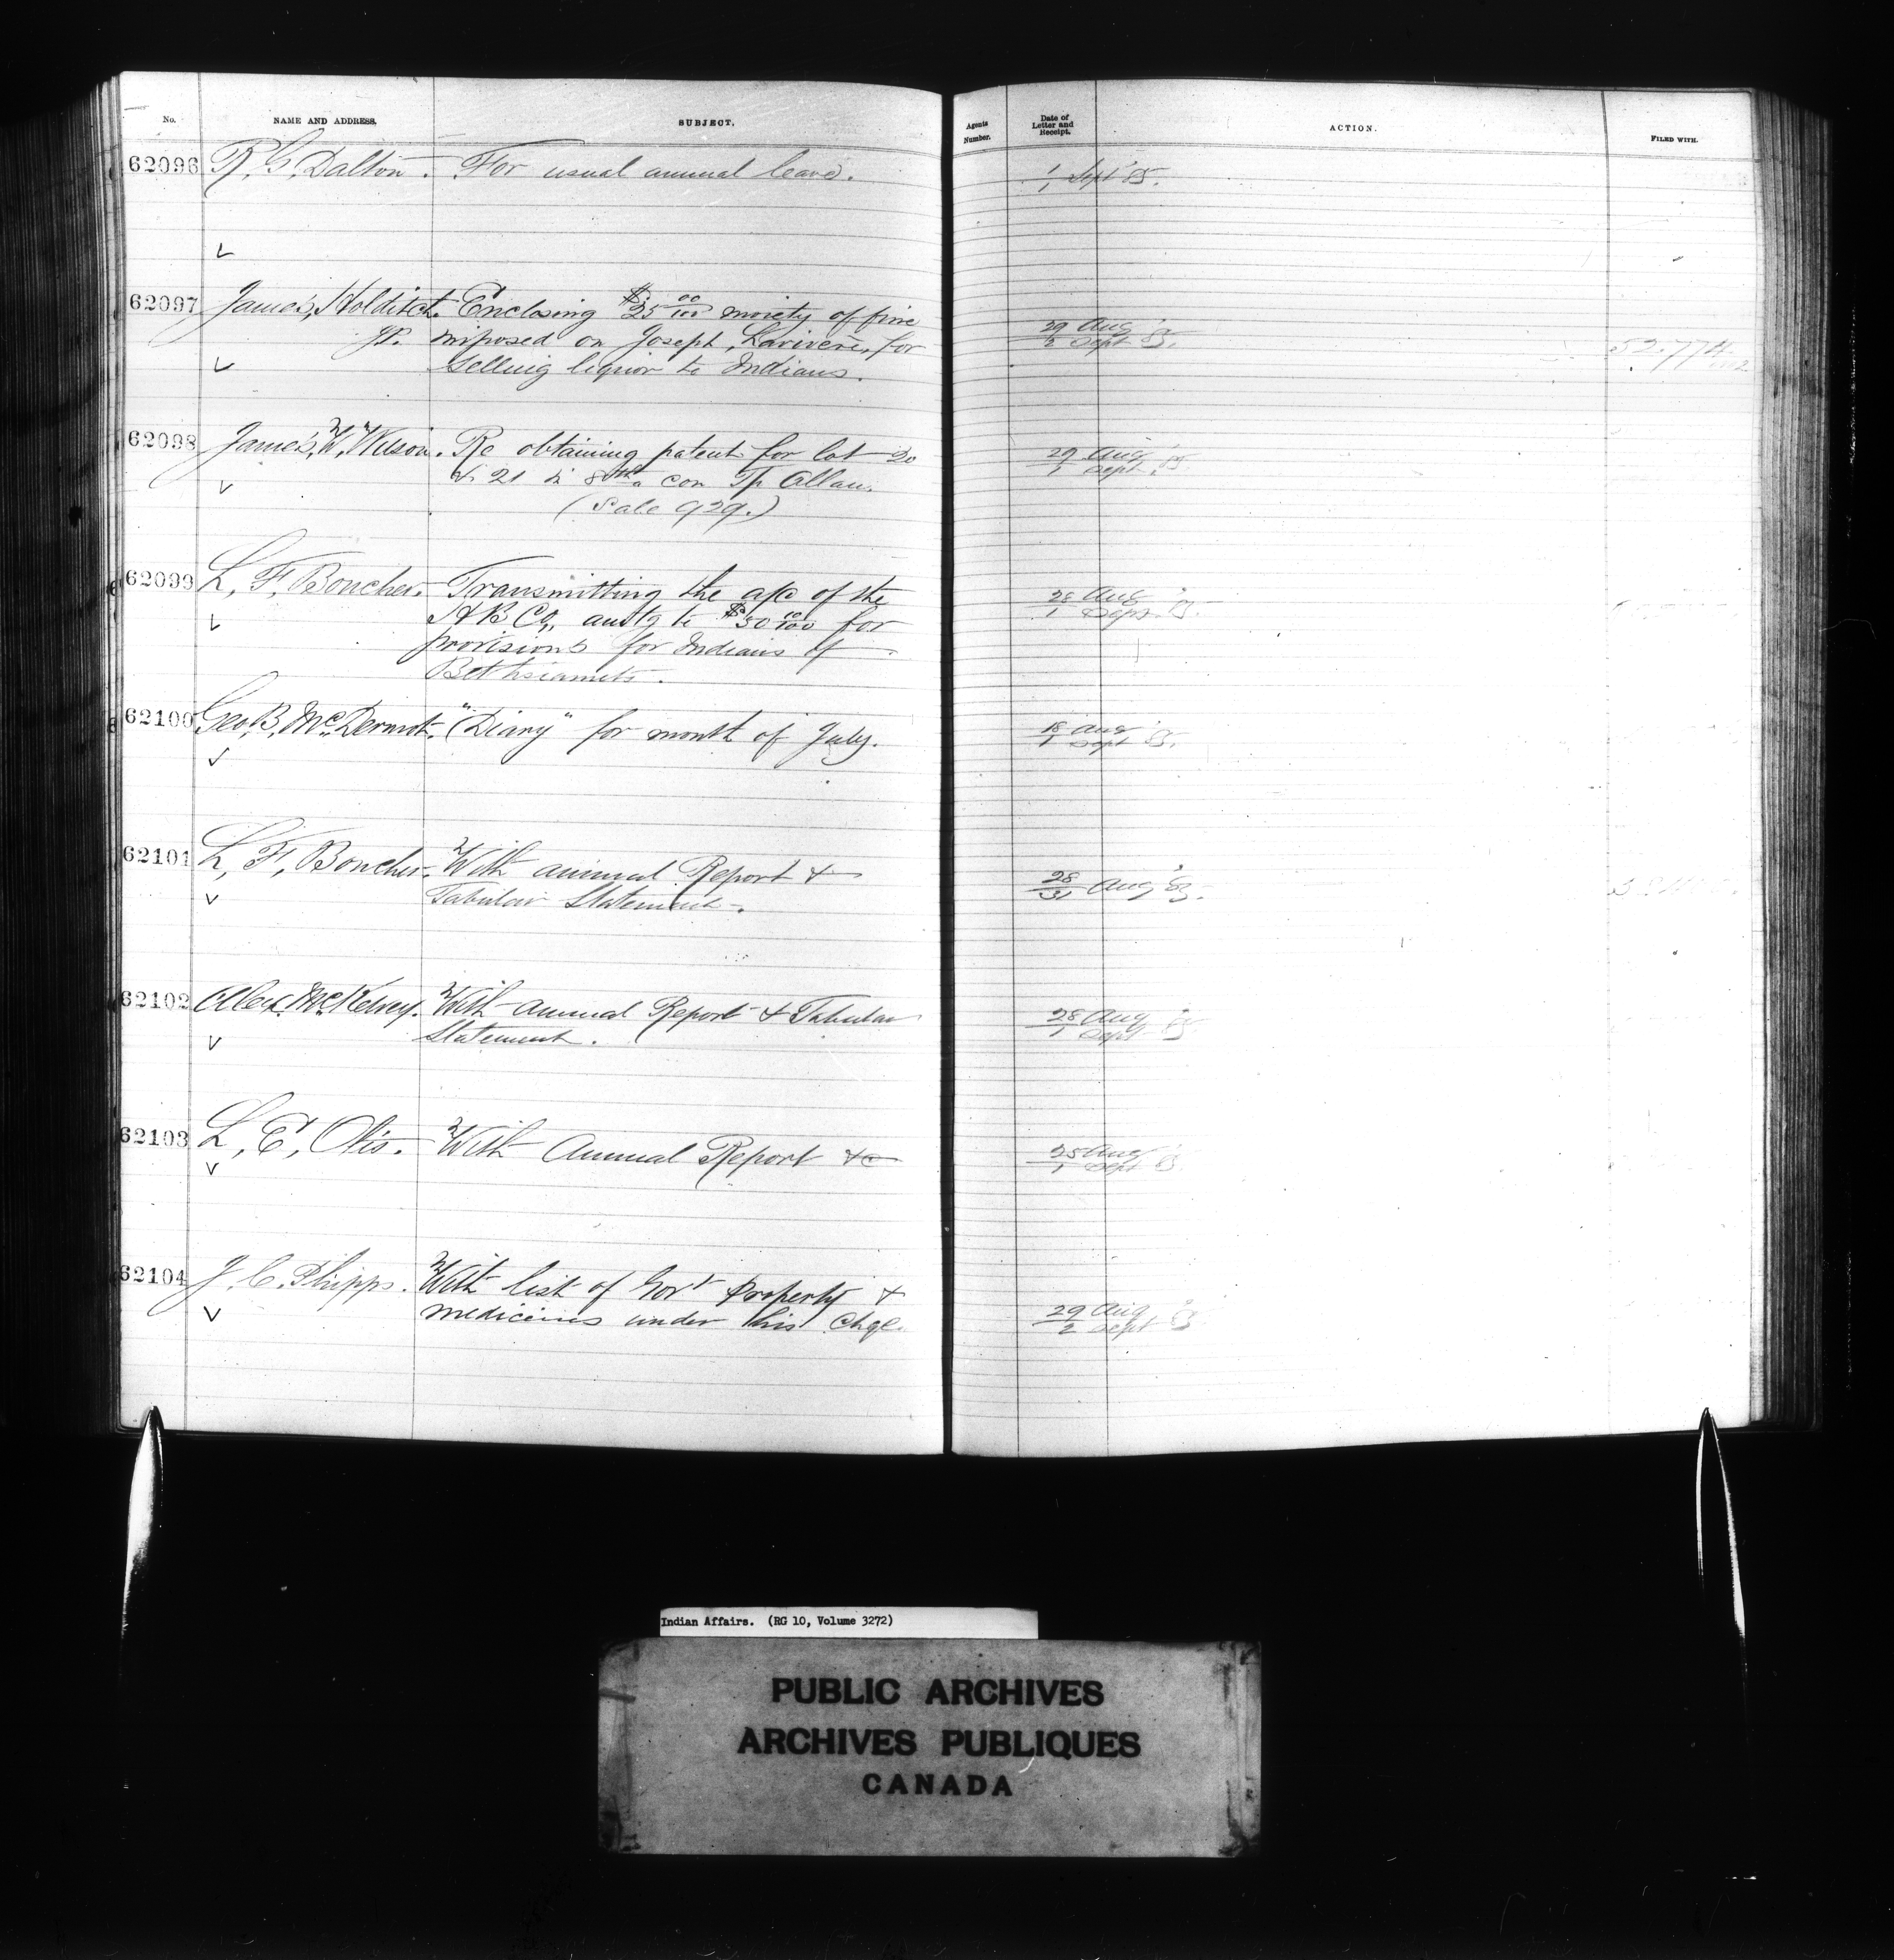 No. NAME AND ADDRESS. SUBJECT. Agents Number. Date of Letter and Receipt. ACTION. FILED WITH.
62096 R. G. Dalton. For usual annual leave. 1/1 Sept 85.
62097 James, Holditch. Enclosing $25 00/100 moiety of fine
JP. imposed on Joseph, Lariviere, for 29 Aug / 2 Sept 85. 52.774
selling liquor to Indians.
62098 James, W, Wilson. Re obtaining patent for lot 20 29 Aug / 1 Sept 85
& 21 in 8th con Tp Allan.
(Sale 929.)
62099 L, F, Boucher. Transmitting the a/c of the 28 Aug / 1 Sept. 85.
H B Co,, amtg to $50 00/100 for
provisions for Indians of
Bethsiamits.
62100 Geo B, McDermot. "Diary" for month of July. 18 Aug / 1 Sept 85.
62101 L, F, Boucher. With annual Report & 28/31 Aug 85.
Tabular Statement.
62102 Alex. McKelvey. With annual Report & Tabular 28 Aug / 1 Sept 85
Statement.
62103 L, E, Otis. With Annual Report &c 25 Aug / 1 Sept 85
62104 J. C. Phipps. With list of Govt property &
medicines under his chge. 29 Aug / 2 Sept 85
Indian Affairs. (RG 10, Volume 3272)
PUBLIC ARCHIVES
ARCHIVES PUBLIQUES
CANADA